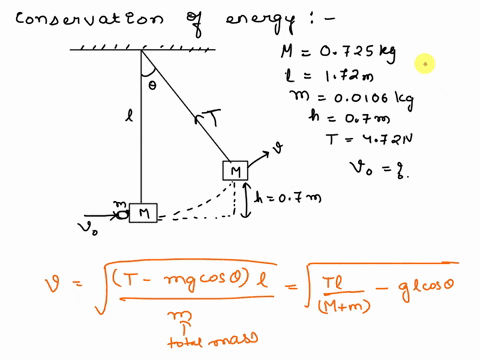 Conservation of energy :-
M = 0.725 kg
l = 1.72 m
m = 0.0106 kg
h = 0.7 m
T = 4.72 N
V₀ = ?
θ
l
T
v
M
m
M
V₀
h = 0.7 m
v = √((T - mg cosθ) l / m) = √(Tl / (M+m) - gl cosθ)
↑
total mass